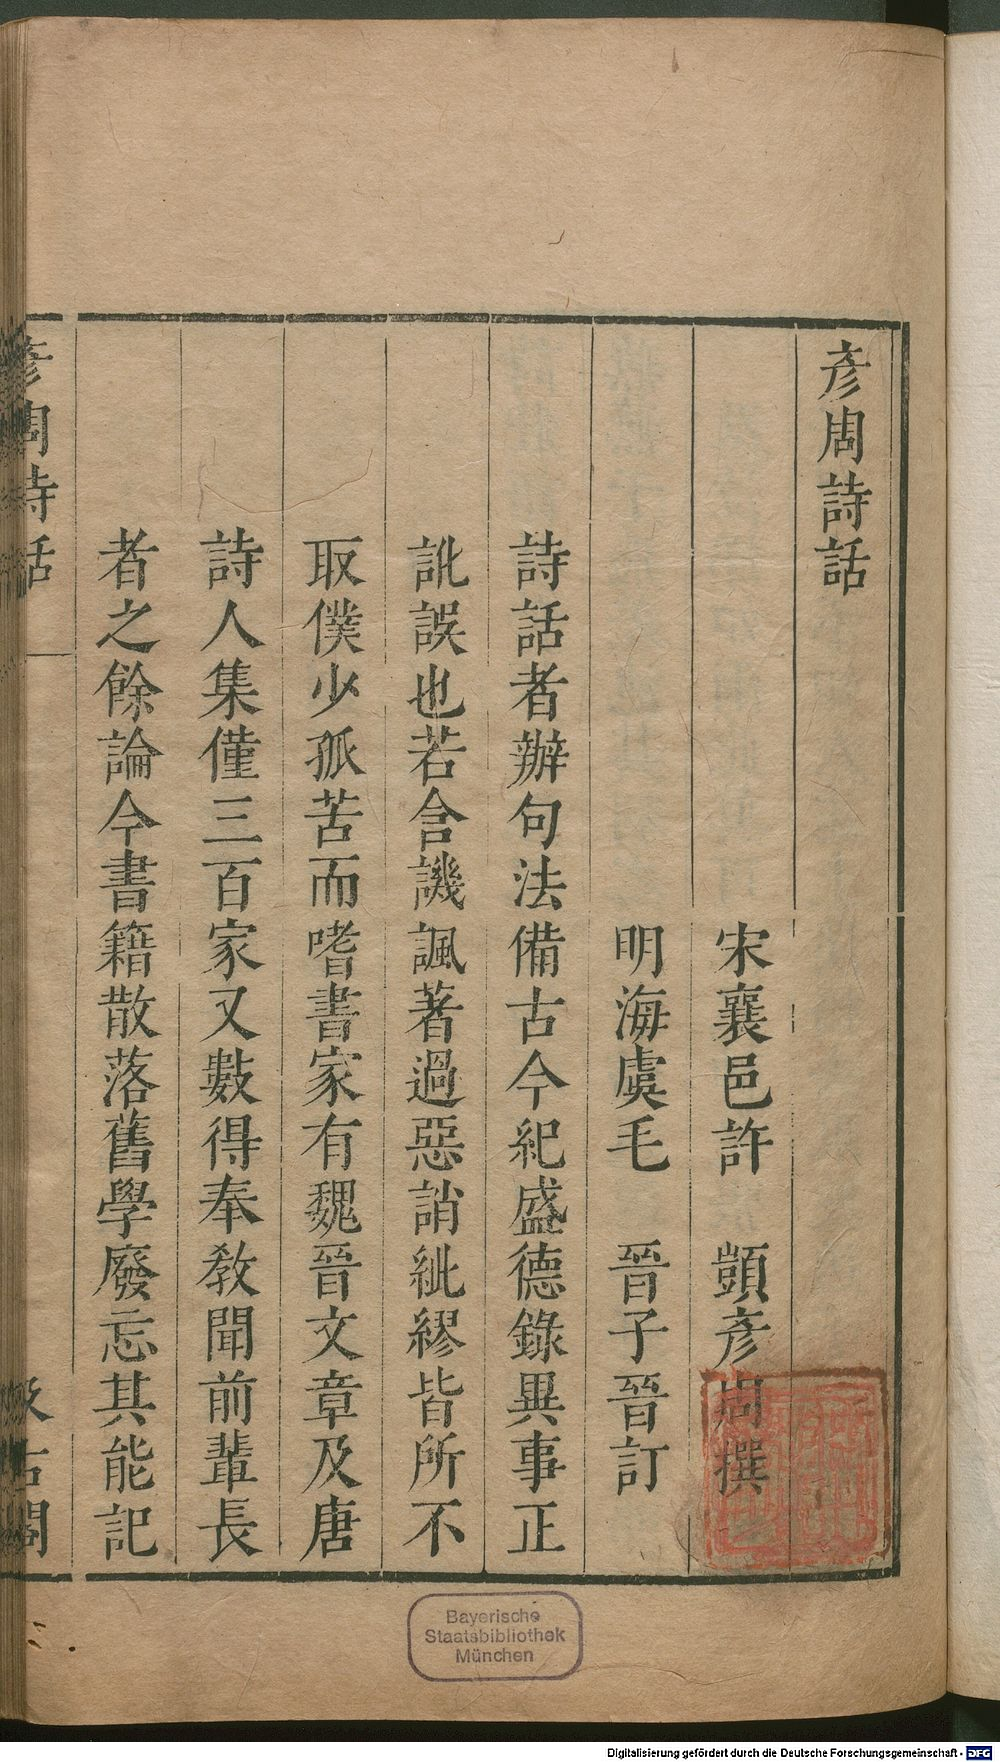 彥周詩話
宋襄邑許　顗彥周撰
明海虞毛　晉子晉訂
詩話者辨句法備古今紀盛德錄異事正
訛誤也若含譏諷著過惡誚紕繆皆所不
取僕少孤苦而嗜書家有魏晉文章及唐
詩人集僅三百家又數得奉敎聞前輩長
者之餘論今書籍散落舊學廢忘其能記
彥周詩話
汲古閣
Bayerische
Staatsbibliothek
München
Digitalisierung gefördert durch die Deutsche Forschungsgemeinschaft - DFG